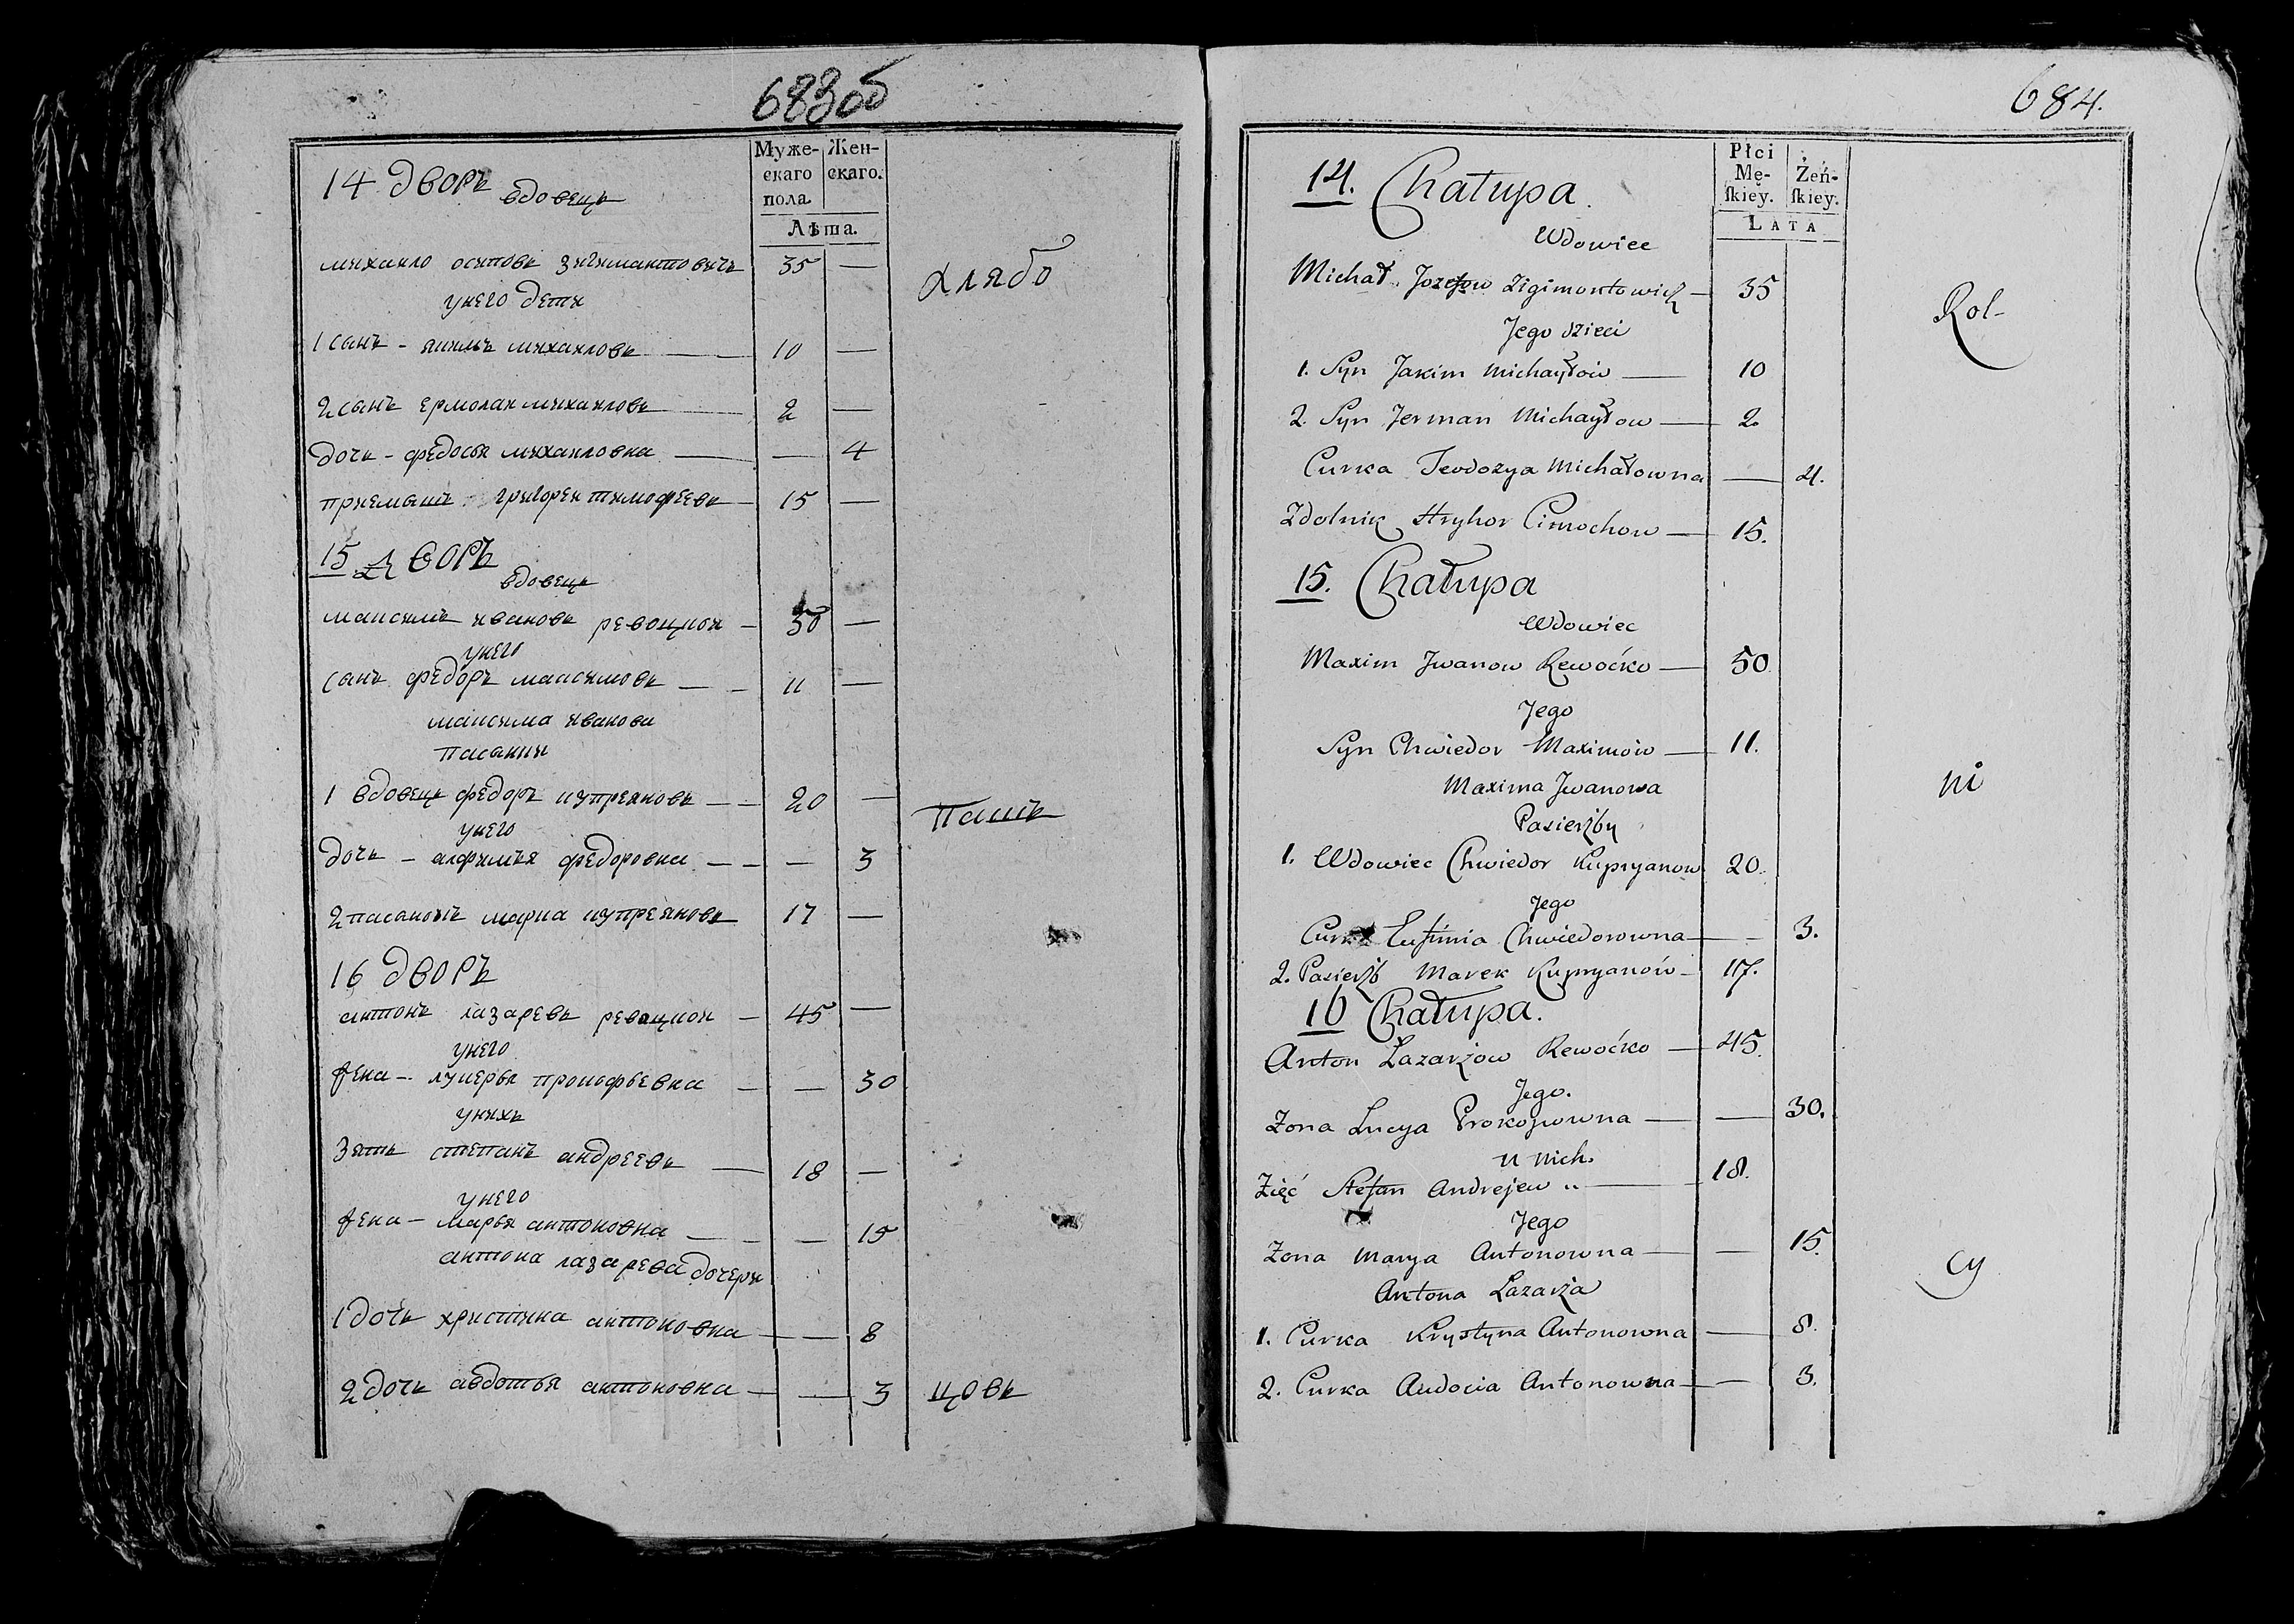 683об
Муже-
скаго
пола.
Жен-
скаго.
Лѣта.
14 дворъ
вдовецъ
михаило осиповъ зигимантовичь 35 —
унего дети
1 сынъ - якимъ михаиловъ — 10 —
2 сынъ ермолаи михаиловъ — 2 —
дочь - федосья михаиловна — — 4
приемышъ григореи тимофеевъ — 15 —
15 дворъ
вдовецъ
максимъ ивановъ ревоцкои — 50 —
унего
сынъ федоръ максимовъ — — 11 —
максима иванова
пасанки
1 вдовецъ федоръ купреяновъ — — 20 —
унего
дочь — алфимья федоровна — — — 3
2 пасанокъ марка купреяновъ 17 —
16 дворъ
антонъ лазаревъ ревоцкои — 45 —
унего
жена — лукерья прокофьевна — — 30
унихъ
зять степанъ андреевъ — 18 —
унего
жена — марья антоновна — — — 15
антона лазарева дочери
1 дочь христина антоновна — — 8
2 дочь авдотья антоновна — — 3
хлябо
пашъ
цовъ
684.
Płci
Mę-
skiey.
Żeń-
skiey.
LATA
14. Chałupa.
Wdowiec
Michał Jozefow Zigimontowicz — 35
Jego dzieci
1. Syn Jakim Michayłow — 10
2. Syn Jerman Michayłow — 2.
Curka Teodozya Michałowna — 4.
Zdolnik Hryhor Cimochow — 15.
15. Chałupa
Wdowiec
Maxim Jwanow Rewoćko — 50
Jego
Syn Chwiedor Maximow — 11.
Maxima Jwanowa
Pasierzby
1. Wdowiec Chwiedor Kupryanow 20.
Jego
Curka Eufimia Chwiedorowna — — 3.
2. Pasierzb Marek Kupryanow — 17.
16 Chałupa.
Anton Lazarzow Rewoćko — 45.
Jego.
Zona Lucya Prokopowna — — 30.
u nich.
Zięć Stefan Andrejew „ — 18.
Jego
Zona Marya Antonowna — — 15.
Antona Lazarza
1. Curka Krystyna Antonowna — 8.
2. Curka Audocia Antonowna — — 3.
Rol-
ni
cy